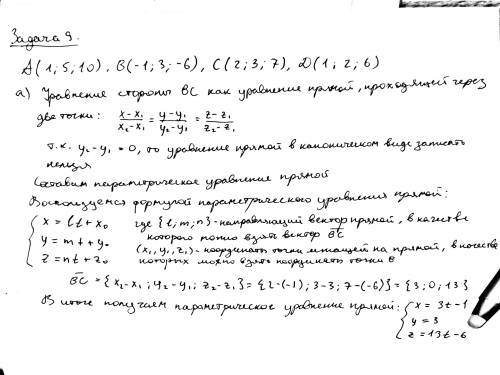 Задача 9.
A(1; 5; 10), B(-1; 3; -6), C(2; 3; 7), D(1; 2; 6)
а) Уравнение стороны BC как уравнение прямой, проходящей через
две точки: (x-x₁)/(x₂-x₁) = (y-y₁)/(y₂-y₁) = (z-z₁)/(z₂-z₁)
т.к. y₂-y₁ = 0, то уравнение прямой в каноническом виде записать
нельзя
Составим параметрическое уравнение прямой
Воспользуемся формулой параметрического уравнения прямой:
{ x = lt + x₀ где {l; m; n} - направляющий вектор прямой, в качестве
y = mt + y₀ которого можно взять вектор BC
z = nt + z₀ (x₁, y₁, z₁) - координаты точки лежащей на прямой, в качестве
которых можно взять координаты точки B
BC = {x₂-x₁; y₂-y₁; z₂-z₁} = {2-(-1); 3-3; 7-(-6)} = {3; 0; 13}
В итоге получаем параметрическое уравнение прямой: { x = 3t-1
y = 3
z = 13t-6